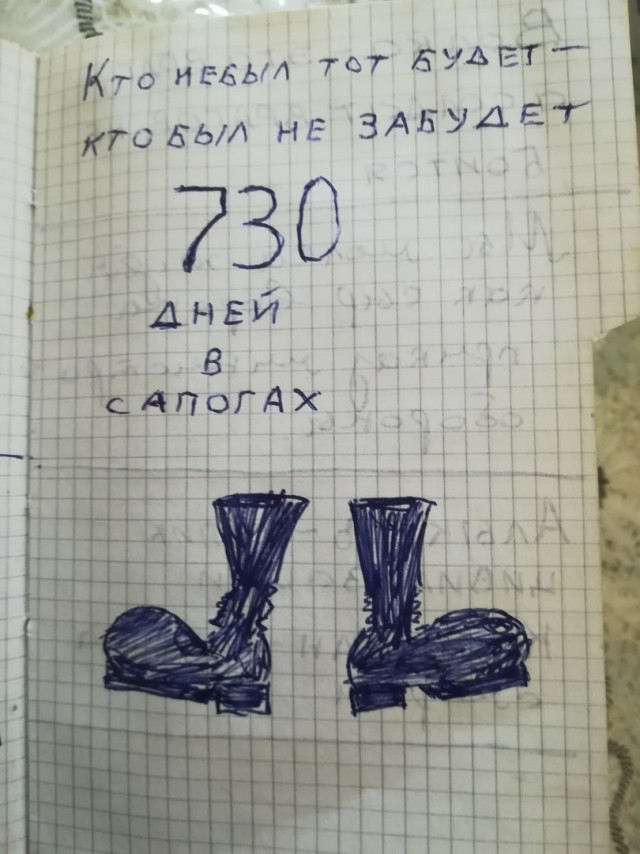 Кто небыл тот будет —
кто был не забудет
730
дней
в
сапогах